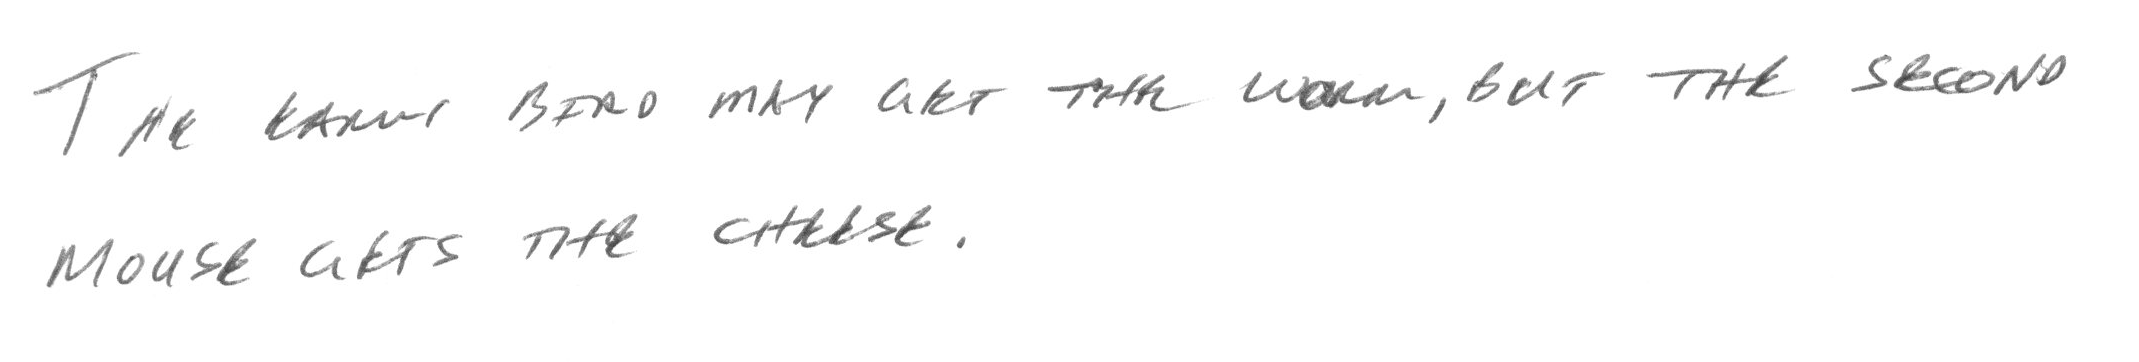 THE EARLY BIRD MAY GET THE WORM, BUT THE SECOND
MOUSE GETS THE CHEESE.